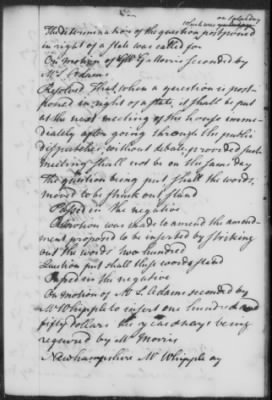 on Saturday
which was
The determination of the question postponed
in right of a State was called for
On motion of Mr G Morris seconded by
Mr S Adams
Resolved That when a question is post-
poned in right of a State, it shall be put
at the next meeting of the house imme-
diately after going through the public
dispatches, without debate, provided such
meeting shall not be on the same day
The question being put shall the words,
moved to be struck out stand
Passed in the negative
A motion was made to amend the amend-
ment proposed to be inserted by striking
out the words two hundred
Question put shall these words stand
Passed in the negative
On motion of Mr S. Adams seconded by
Mr Whipple to insert one hundred and
fifty dollars the yeas & nays being
required by Mr Morris
Newhampshire Mr Whipple ay